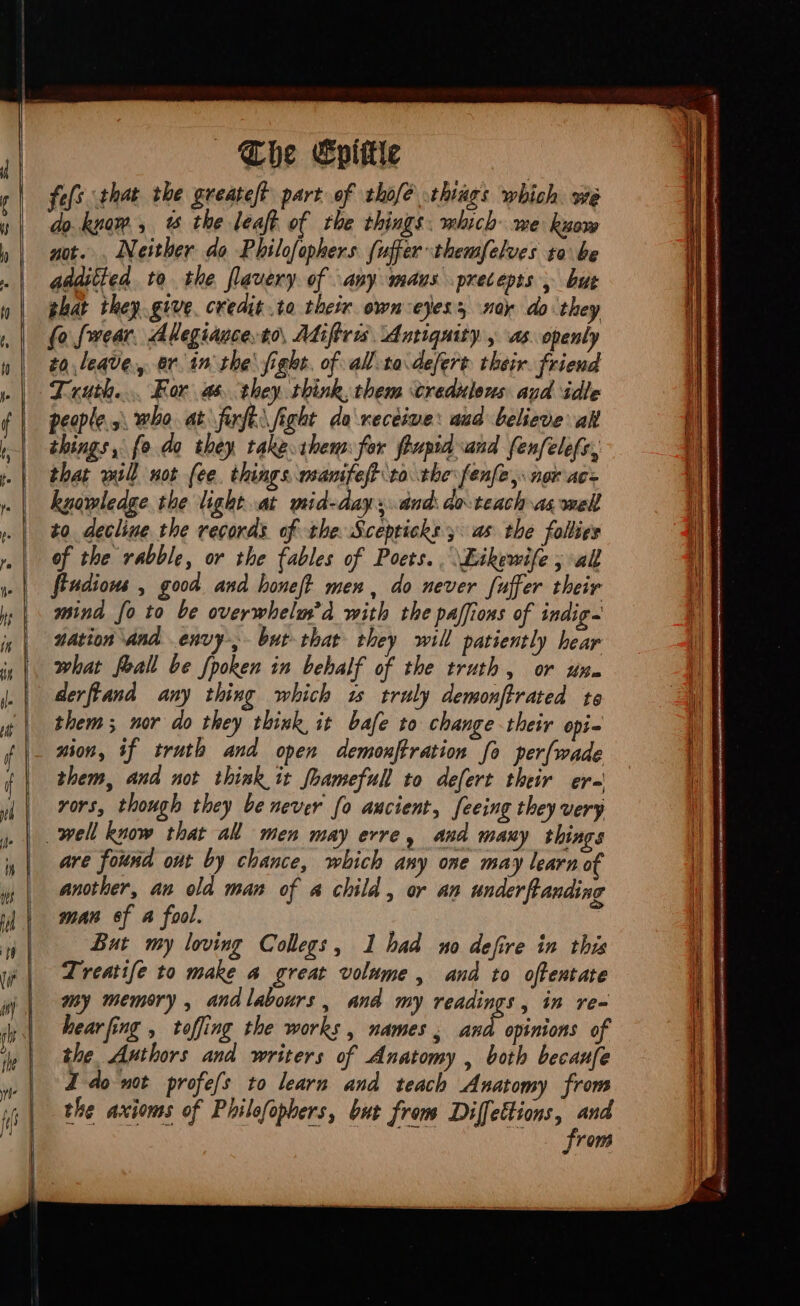 The Epistle
fess that the greatest part of those things which we
do know, is the least of the things which we know
not. Neither do Philosophers suffer themselves to be
addicted to the slavery of any mans precepts, but
that they give credit to their own eyes; nor do they
so swear Allegiance to Mistris Antiquity, as openly
to leave, or in the sight of all to desert their friend
Truth. For as they think them credulous and idle
people, who at first sight do receive and believe all
things, so do they take them for stupid and senseless,
that will not see things manifest to the sense, nor ac-
knowledge the light at mid-day; and do teach as well
to decline the records of the Scepticks, as the follies
of the rabble, or the fables of Poets. Likewise, all
studious, good and honest men, do never suffer their
mind so to be overwhelm'd with the passions of indig-
nation and envy, but that they will patiently hear
what shall be spoken in behalf of the truth, or un-
derstand any thing which is truly demonstrated to
them; nor do they think it base to change their opi-
nion, if truth and open demonstration so perswade
them, and not think it shamefull to desert their er-
rors, though they be never so ancient, seeing they very
well know that all men may erre, and many things
are found out by chance, which any one may learn of
another, an old man of a child, or an understanding
man of a fool.
But my loving Collegs, I had no desire in this
Treatise to make a great volume, and to ostentate
my memory, and labours, and my readings, in re-
hearsing, tossing the works, names, and opinions of
the Authors and writers of Anatomy, both because
I do not profess to learn and teach Anatomy from
the axioms of Philosophers, but from Dissections, and
from